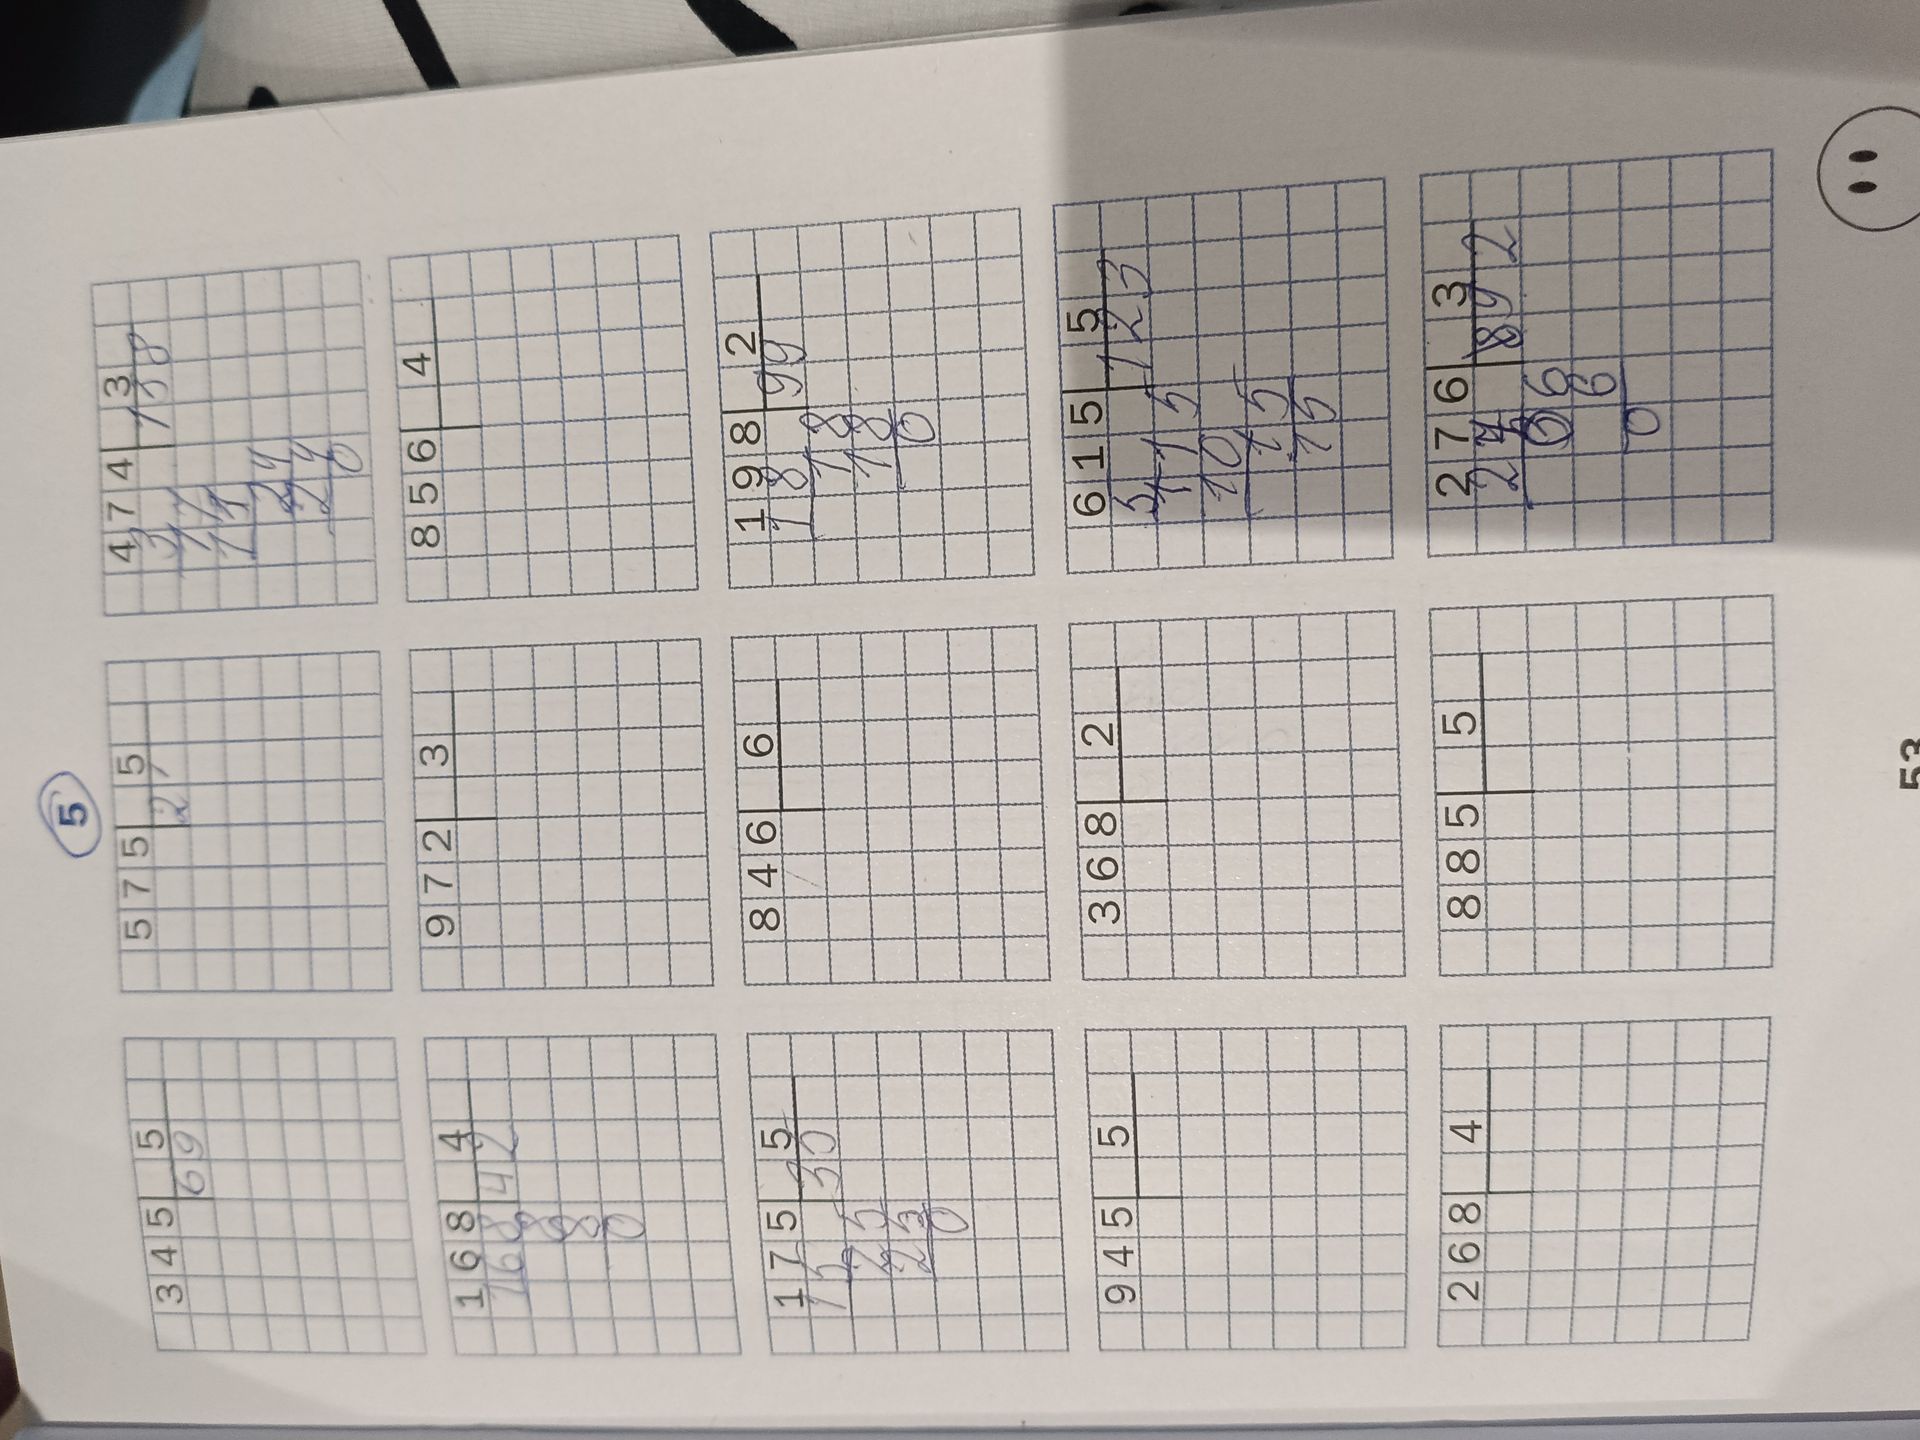 5
345 5 575 5 474 3
69 27 3 158
17
15
24
24
0
168 4 972 3 856 4
168 42
8
8
0
175 5 846 6 198 2
15 30 18 99
25 18
25 18
0 0
945 5 368 2 615 5
5 123
11 5
10
15
15
268 4 885 5 276 3
892
06
6
0
53